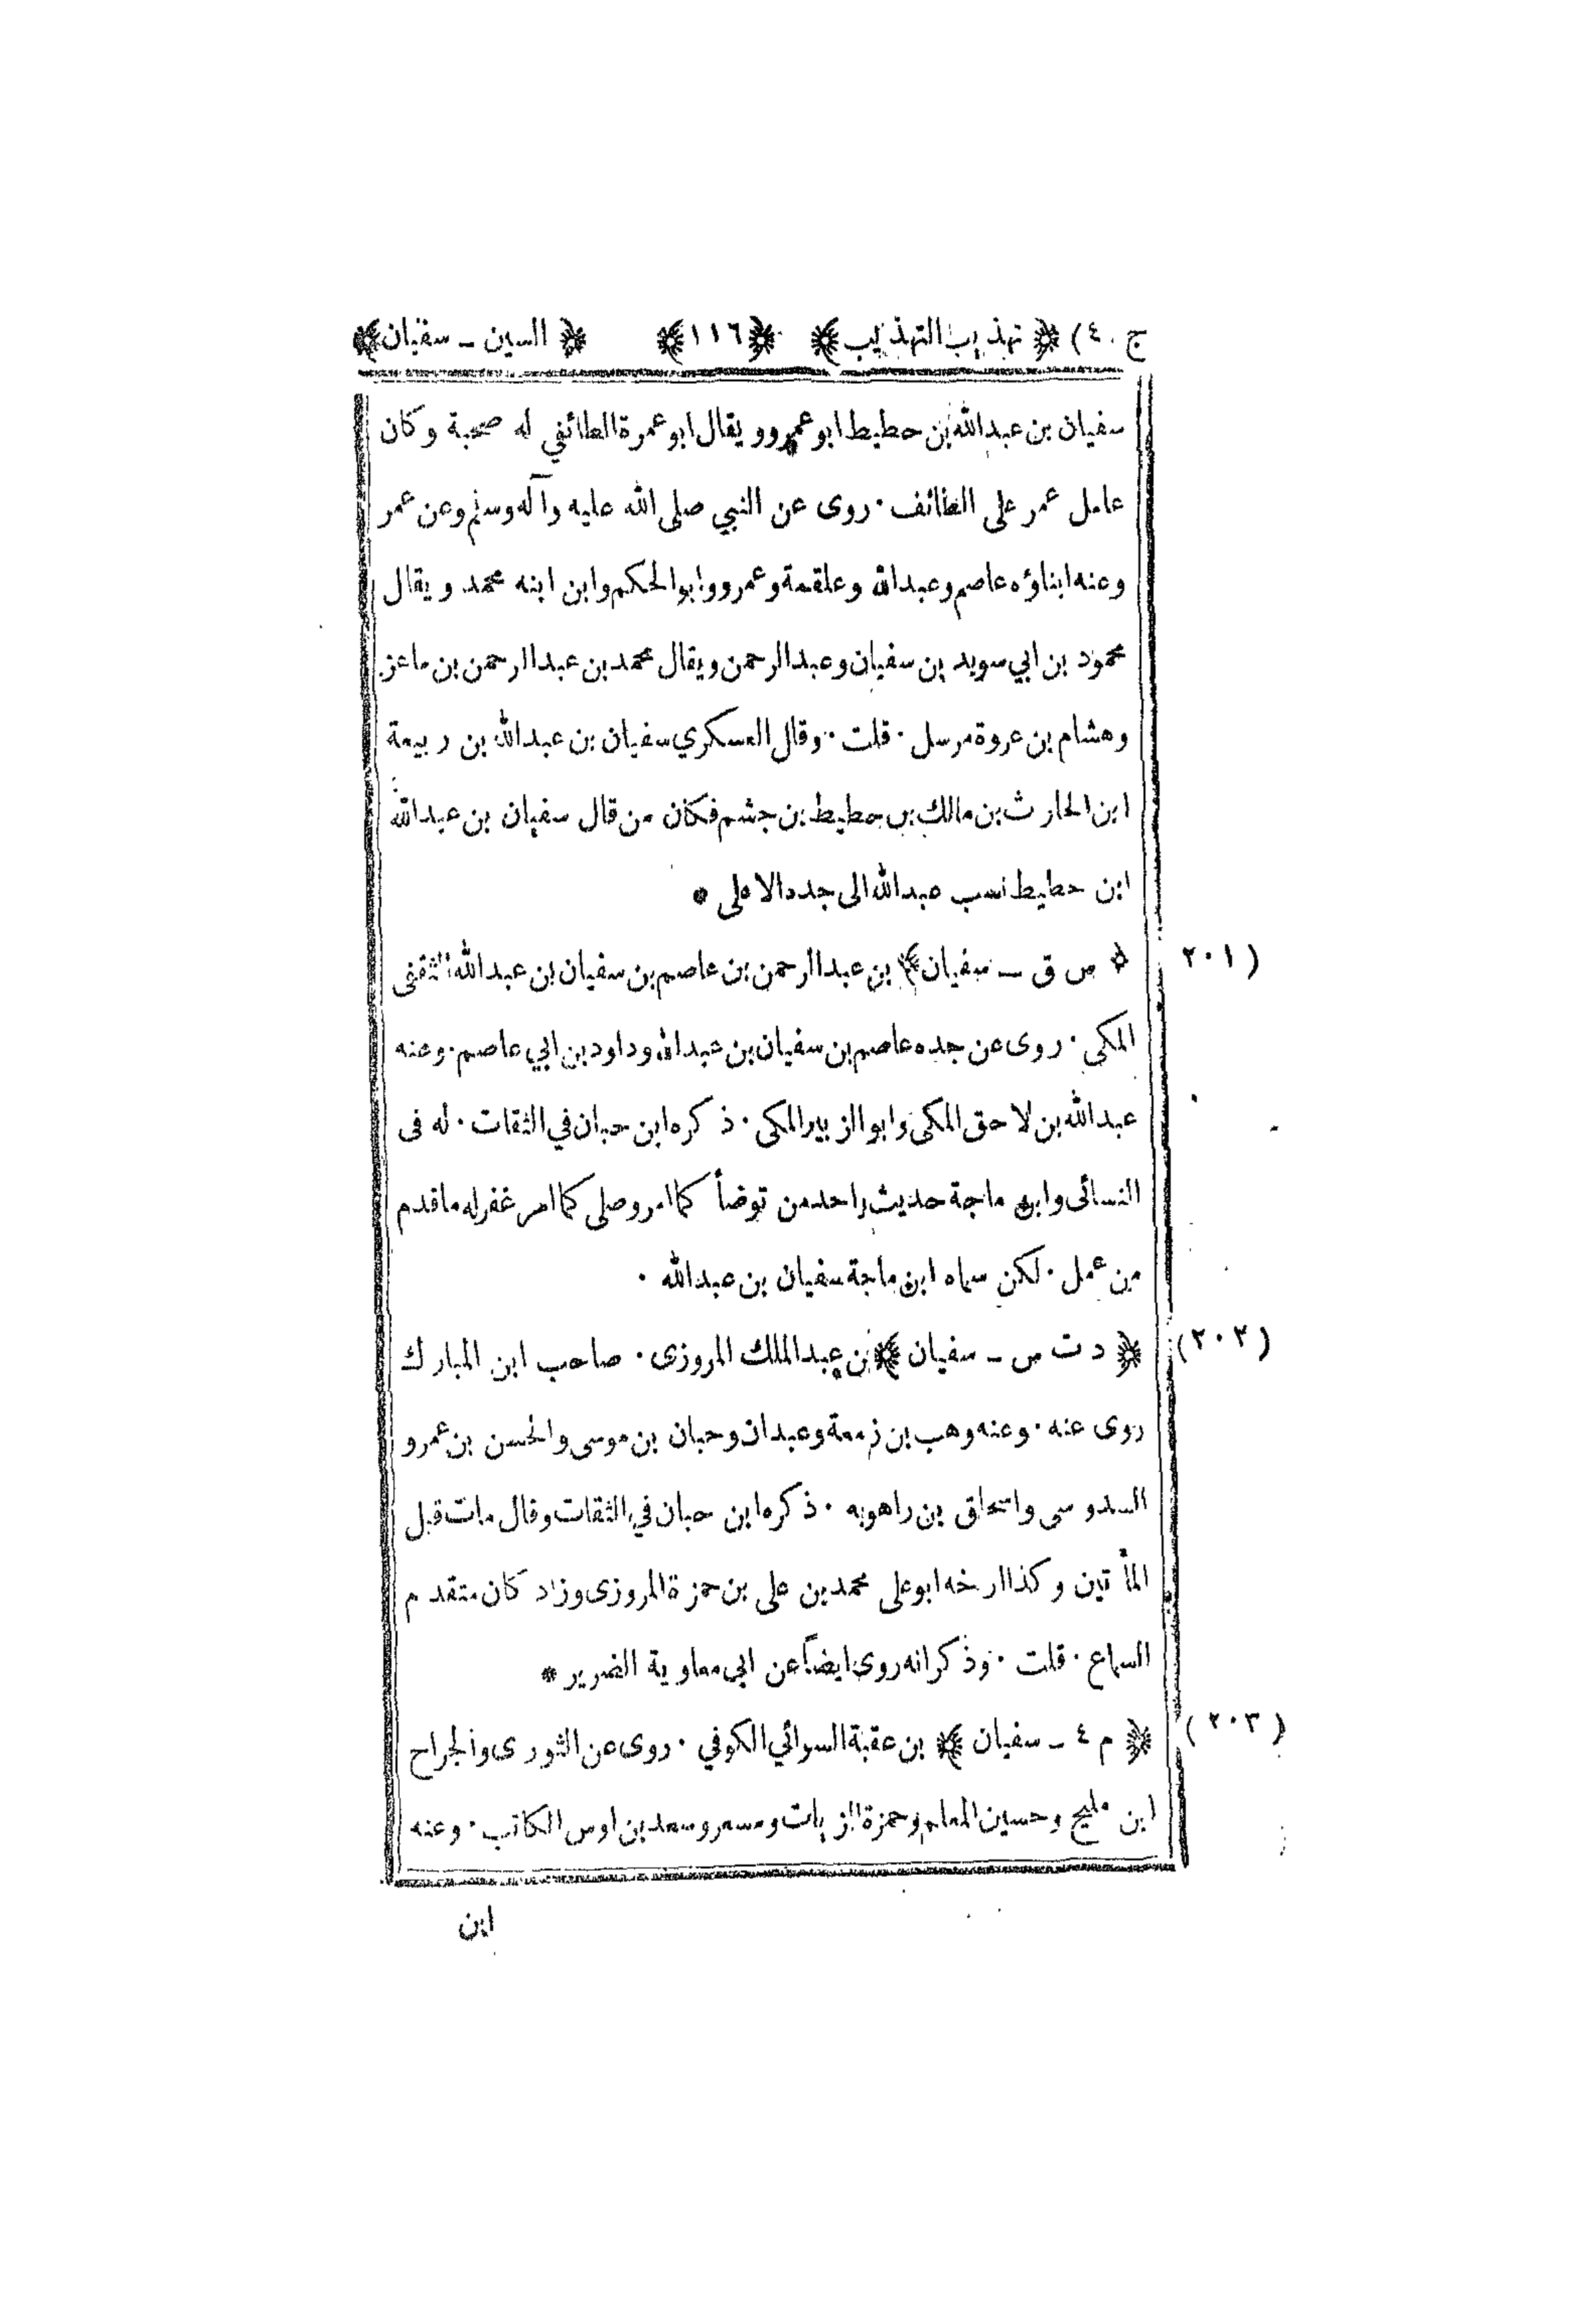 ج . ٤) ﴿ تهذيب التهذيب ﴾ ﴿ ١١٦ ﴾ ﴿ السين ـ سفيان ﴾
سفيان بن عبدالله بن حطيط ابو عمرو ويقال ابو عمرة الطائفي له صحبة وكان
عامل عمر على الطائف . روى عن النبي صلى الله عليه وآله وسلم وعن عمر
وعنه ابناؤه عاصم وعبدالله وعلقمة وعمرو وابو الحكم وابن ابنه محمد ويقال
محمود بن ابي سويد بن سفيان وعبدالرحمن ويقال محمد بن عبدالرحمن بن ماعز
وهشام بن عروة مرسل . قلت . وقال العسكري سفيان بن عبدالله بن ربيعة
ابن الحارث بن مالك بن حطيط بن جشم فكان من قال سفيان بن عبدالله
ابن حطيط نسب عبدالله الى جده الاعلى *
(٢٠١ ﴿ س ق ــ سفيان ﴾ بن عبدالرحمن بن عاصم بن سفيان بن عبدالله الثقفى
المكى . روى عن جده عاصم بن سفيان بن عبدالله وداود بن ابي عاصم . وعنه
عبدالله بن لاحق المكى وابو الزبير المكى . ذكره ابن حبان في الثقات . له فى
النسائى وابن ماجة حديث واحد من توضأ كما امر وصلى كما امر غفر له ما قدم
من عمل . لكن سماه ابن ماجة سفيان بن عبدالله .
(٢٠٢) ﴿ د ت س ـ سفيان ﴾ بن عبدالملك المروزى . صاحب ابن المبارك
روى عنه . وعنه وهب بن زمعة وعبدان وحبان بن موسى والحسن بن عمرو
السدوسى واسحاق بن راهويه . ذكره ابن حبان في الثقات وقال مات قبل
المأتين وكذا ارخه ابو على محمد بن على بن حمزة المروزى وزاد كان متقدم
السماع . قلت . وذكر انه روى ايضاً عن ابي معاوية الضرير *
(٢٠٣) ﴿ م ٤ ـ سفيان ﴾ بن عقبة السوائي الكوفي . روى عن الثورى والجراح
ابن مليح وحسين المعلم وحمزة الزيات ومسعر وسعد بن اوس الكاتب . وعنه
ابن